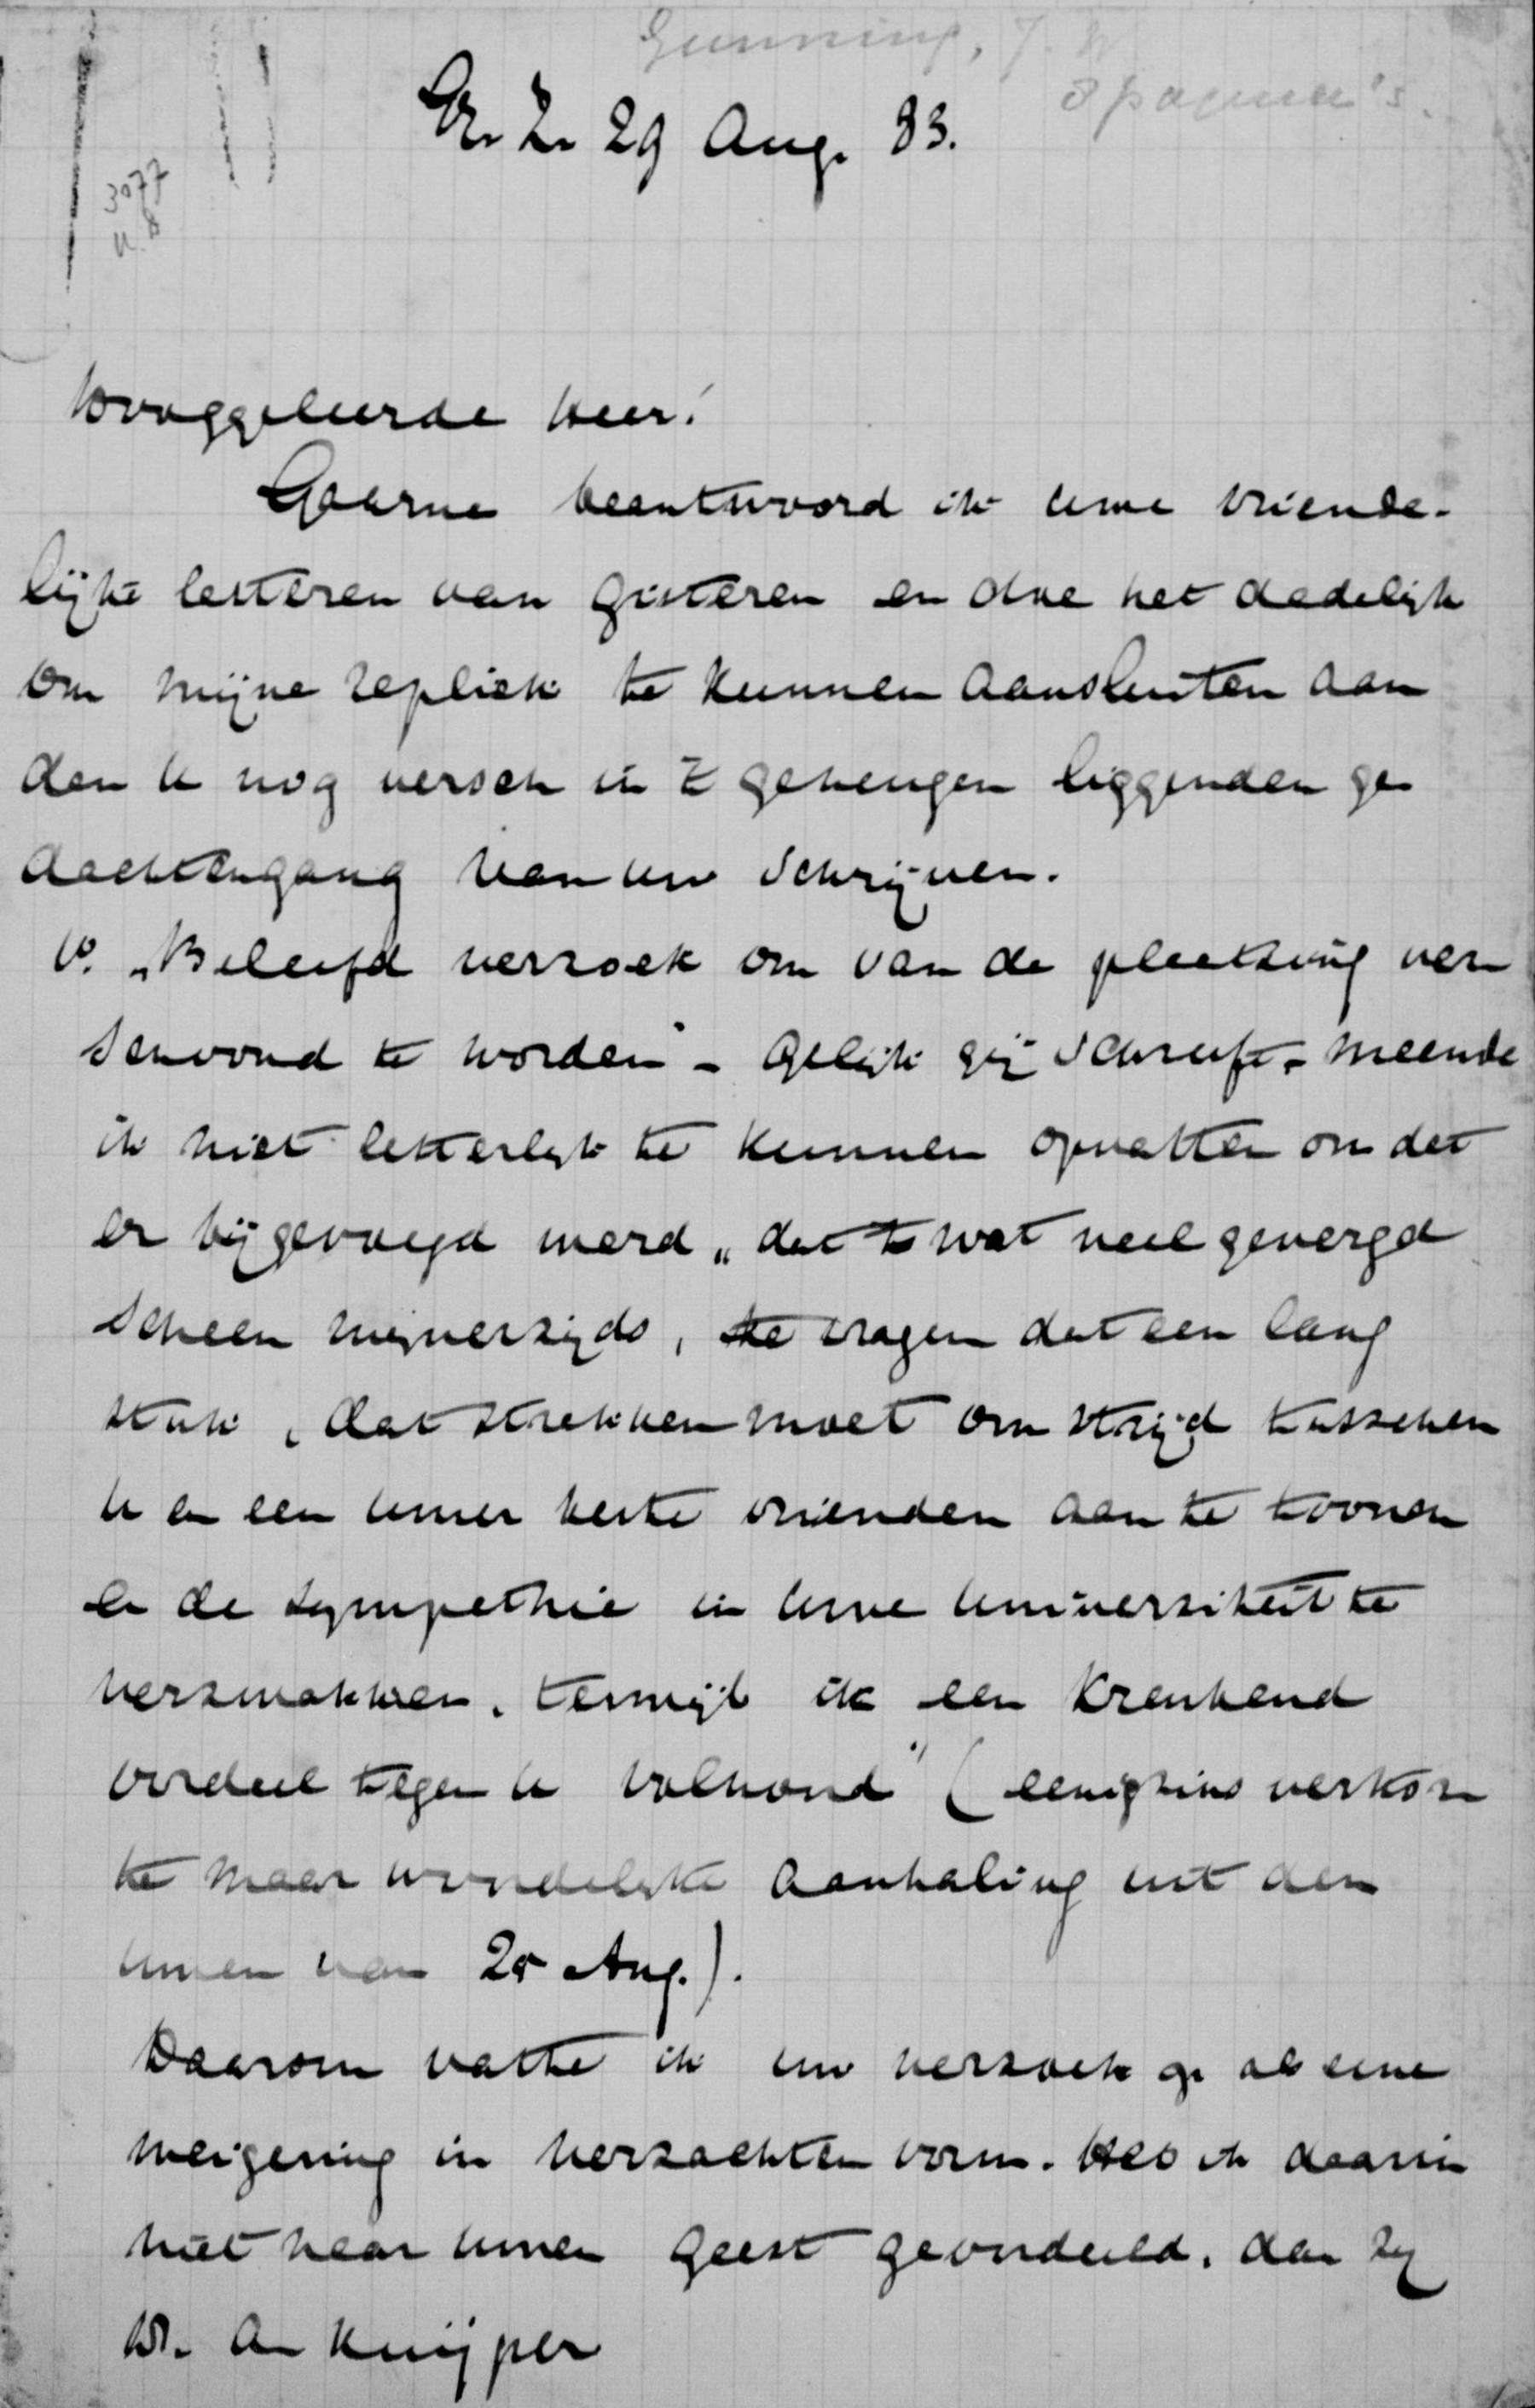 Gunning, J. H
8 pagina's.
3077
n. 8
29 Aug. 83.
Hooggeleerde Heer!
Gaarne beantwoord ik uwe vriende-
lijke letteren van gisteren en doe het dadelijk
om mijne repliek te kunnen aansluiten aan
den U nog versch in 't geheugen liggenden ge
dachtengang van uw schrijven.
1o. „Beleefd verzoek om van de plaatsing ver
schoond te worden" - gelijk gij schreeft - meende
ik niet letterlijk te kunnen opvatten omdat
er bijgevoegd werd „dat 't wat veel gevergd
scheen mijnerzijds, te vragen dat een lang
stuk, dat strekken moet om strijd tusschen
U en een uwer beste vrienden aan te toonen
en de sympathie in uwe universiteit te
verzwakken, terwijl ik een krenkend
oordeel tegen U volhoud" (eenigzins verkor
te maar woordelijke aanhaling uit den
uwen van 25 Aug.).
Daarom vatte ik uw verzoek op als eene
weigering in verzachten vorm. Heb ik daarin
niet naar uwen geest geoordeeld, dan zij
Dr. A. Kuijper